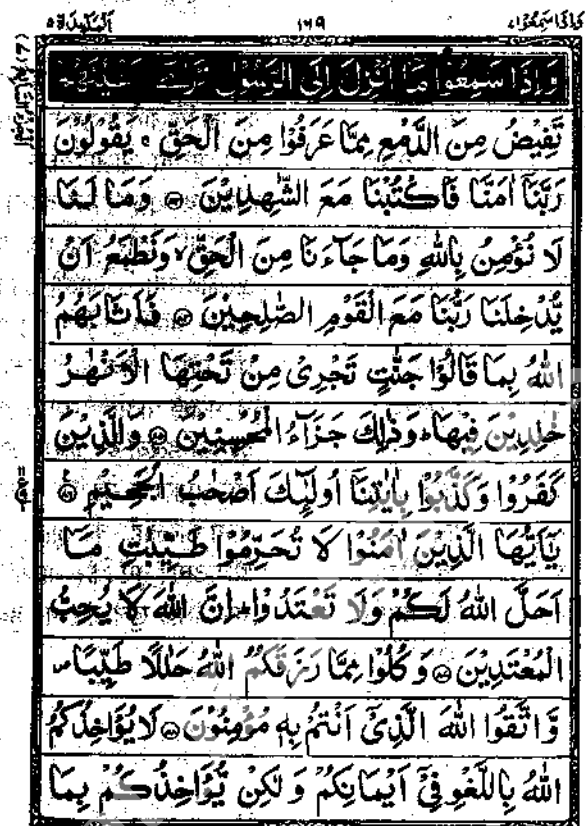 وَاِذَا سَمِعُوْا ٧
١٦٩
اَلْمَآئِدَة ٥
وَاِذَا سَمِعُوْا مَآ اُنْزِلَ اِلَى الرَّسُوْلِ تَرٰٓى اَعْيُنَهُمْ
تَفِيْضُ مِنَ الدَّمْعِ مِمَّا عَرَفُوْا مِنَ الْحَقِّ ۚ يَقُوْلُوْنَ
رَبَّنَآ اٰمَنَّا فَاكْتُبْنَا مَعَ الشّٰهِدِيْنَ ۝ وَمَا لَنَا
لَا نُؤْمِنُ بِاللّٰهِ وَمَا جَآءَنَا مِنَ الْحَقِّ ۙ وَنَطْمَعُ اَنْ
يُّدْخِلَنَا رَبُّنَا مَعَ الْقَوْمِ الصّٰلِحِيْنَ ۝ فَاَثَابَهُمُ
اللّٰهُ بِمَا قَالُوْا جَنّٰتٍ تَجْرِيْ مِنْ تَحْتِهَا الْاَنْهٰرُ
خٰلِدِيْنَ فِيْهَا ؕ وَذٰلِكَ جَزَآءُ الْمُحْسِنِيْنَ ۝ وَالَّذِيْنَ
كَفَرُوْا وَكَذَّبُوْا بِاٰيٰتِنَآ اُولٰٓئِكَ اَصْحٰبُ الْجَحِيْمِ ۝
يٰٓاَيُّهَا الَّذِيْنَ اٰمَنُوْا لَا تُحَرِّمُوْا طَيِّبٰتِ مَآ
اَحَلَّ اللّٰهُ لَكُمْ وَلَا تَعْتَدُوْا ؕ اِنَّ اللّٰهَ لَا يُحِبُّ
الْمُعْتَدِيْنَ ۝ وَكُلُوْا مِمَّا رَزَقَكُمُ اللّٰهُ حَلٰلًا طَيِّبًا ۪
وَّاتَّقُوا اللّٰهَ الَّذِيْٓ اَنْتُمْ بِهٖ مُؤْمِنُوْنَ ۝ لَا يُؤَاخِذُكُمُ
اللّٰهُ بِاللَّغْوِ فِيْٓ اَيْمَانِكُمْ وَلٰكِنْ يُّؤَاخِذُكُمْ بِمَا